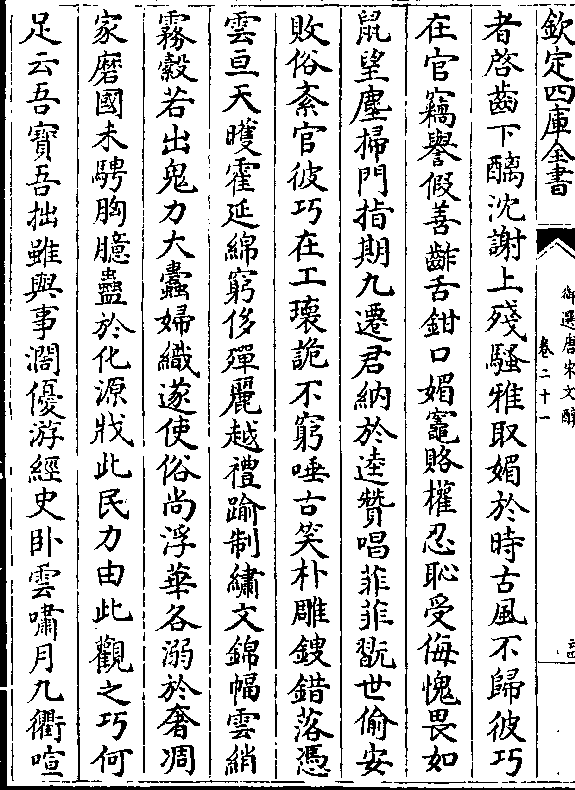 欽定四庫全書
御選唐宋文醇
卷二十一
者啓齒下醨沈謝上殘騷雅取媚於時古風不歸彼巧
在官竊譽假善齰舌鉗口媚竈賂權忍恥受侮愧畏如
鼠望塵掃門指期九遷君納於逵贊唱菲菲翫世偷安
敗俗紊官彼巧在工瓌詭不窮唾古笑朴雕鎪錯落憑
雲亘天矆霍延綿窮侈殫麗越禮踰制繡文錦幅雲綃
霧縠若出鬼力大蠹婦織遂使俗尚浮華各溺於奢凋
家磨國未騁胸臆蠱於化源戕此民力由此觀之巧何
足云吾寶吾拙雖與事濶優游經史卧雲嘯月九衢喧